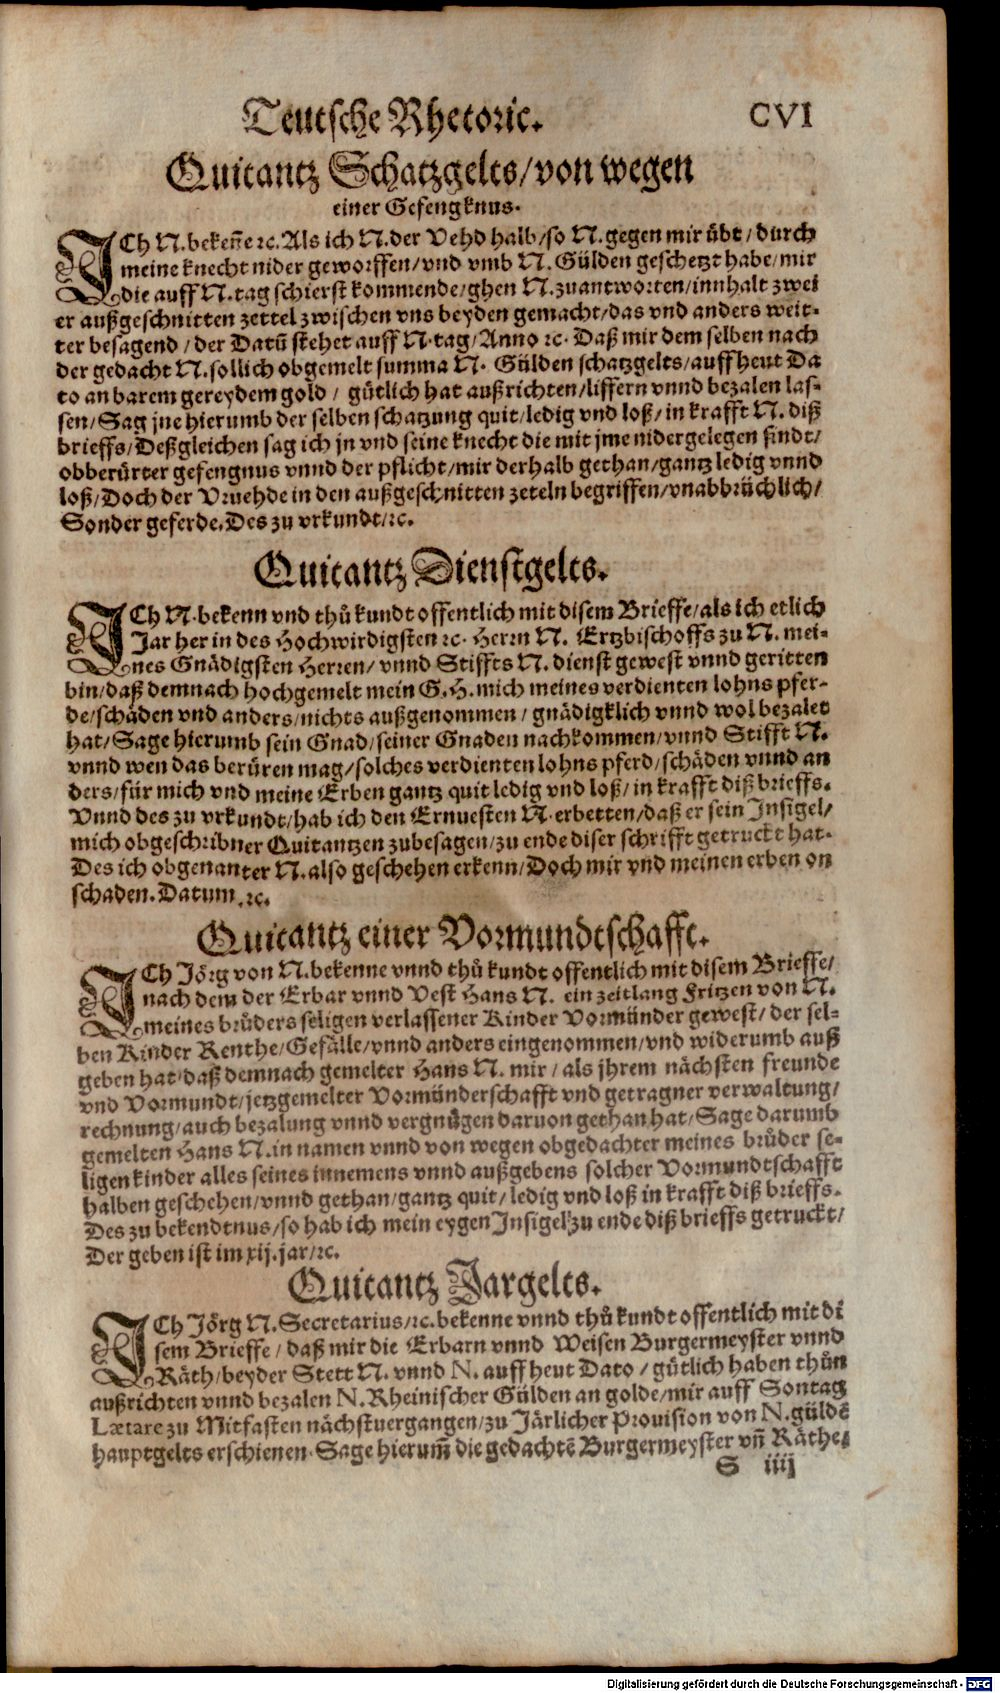 Teutsche Rhetoric. CVI
Quitantz Schatzgelts/von wegen
einer Gefengknus.
ICh N. bekeñe ꝛc. Als ich N. der Vehd halb/so N. gegen mir übt/durch
meine knecht nider geworffen/vnd vmb N. Gülden geschetzt habe/mir
die auff N. tag schierst kommende/ghen N. zuantworten/innhalt zwei
er außgeschnitten zettel zwischen vns beyden gemacht/das vnd anders weit-
ter besagend/der Datū stehet auff N. tag/Anno ꝛc. Daß mir dem selben nach
der gedacht N. sollich obgemelt summa N. Gülden schatzgelts/auff heut Da
to an barem gereydem gold/ gütlich hat außrichten/liffern vnnd bezalen las-
sen/Sag jne hierumb der selben schatzung quit/ledig vnd loß/in krafft N. diß
brieffs/Deßgleichen sag ich jn vnd seine knecht die mit jme nidergelegen sindt/
obberürter gefengnus vnnd der pflicht/mir derhalb gethan/gantz ledig vnnd
loß/Doch der Vruehde in den außgeschnitten zeteln begriffen/vnabbrüchlich/
Sonder geferde. Des zu vrkundt/ꝛc.
Quitantz Dienstgelts.
ICh N. bekenn vnd thů kundt offentlich mit disem Brieffe/als ich etlich
Jar her in des Hochwirdigsten ꝛc. Herrn N. Ertzbischoffs zu N. mei-
nes Gnädigsten Herren/ vnnd Stiffts N. dienst gewest vnnd geritten
bin/daß demnach hochgemelt mein G. H. mich meines verdienten lohns pfer-
de/schäden vnd anders/nichts außgenommen/ gnädigklich vnnd wol bezalet
hat/Sage hierumb sein Gnad/seiner Gnaden nachkommen/vnnd Stifft N.
vnnd wen das berüren mag/solches verdienten lohns pferd/schäden vnnd an
ders/für mich vnd meine Erben gantz quit ledig vnd loß/in krafft diß brieffs.
Vnnd des zu vrkundt/hab ich den Ernuesten N. erbetten/daß er sein Insigel/
mich obgeschribner Quitantzen zubesagen/zu ende diser schrifft getruckt hat.
Des ich obgenanter N. also geschehen erkenn/Doch mir vnd meinen erben on
schaden. Datum ꝛc.
Quitantz einer Vormundtschafft.
ICh Jörg von N. bekenne vnnd thů kundt offentlich mit disem Brieffe/
nach dem der Erbar vnnd Vest Hans N. ein zeitlang Fritzen von N.
meines brůders seligen verlassener Kinder Vormünder gewest/der sel-
ben Kinder Renthe/Gefälle/vnnd anders eingenommen/vnd widerumb auß
geben hat/daß demnach gemelter Hans N. mir/als jhrem nächsten freunde
vnd Vormundt/jetzgemelter Vormünderschafft vnd getragner verwaltung/
rechnung/auch bezalung vnnd vergnůgen daruon gethan hat/Sage darumb
gemelten Hans N. in namen vnnd von wegen obgedachter meines brůder se-
ligen kinder alles seines innemens vnnd außgebens solcher Vormundtschafft
halben geschehen/vnnd gethan/gantz quit/ledig vnd loß in krafft diß brieffs.
Des zu bekendtnus/so hab ich mein eygen Insigel zu ende diß brieffs getruckt/
Der geben ist im xij. jar/ꝛc.
Quitantz Jargelts.
ICh Jörg N. Secretarius/ꝛc. bekenne vnnd thů kundt offentlich mit di
sem Brieffe/ daß mir die Erbarn vnnd Weisen Burgermeyster vnnd
Räth/beyder Stett N. vnnd N. auff heut Dato/ gütlich haben thůn
außrichten vnnd bezalen N. Rheinischer Gülden an golde/mir auff Sontag
Lætare zu Mitfasten nächstuergangen/zu Järlicher Prouision von N. güldē
hauptgelts erschienen. Sage hierum̃ die gedachtē Burgermeyster vñ Räthe/
S iiij
Digitalisierung gefördert durch die Deutsche Forschungsgemeinschaft - DFG